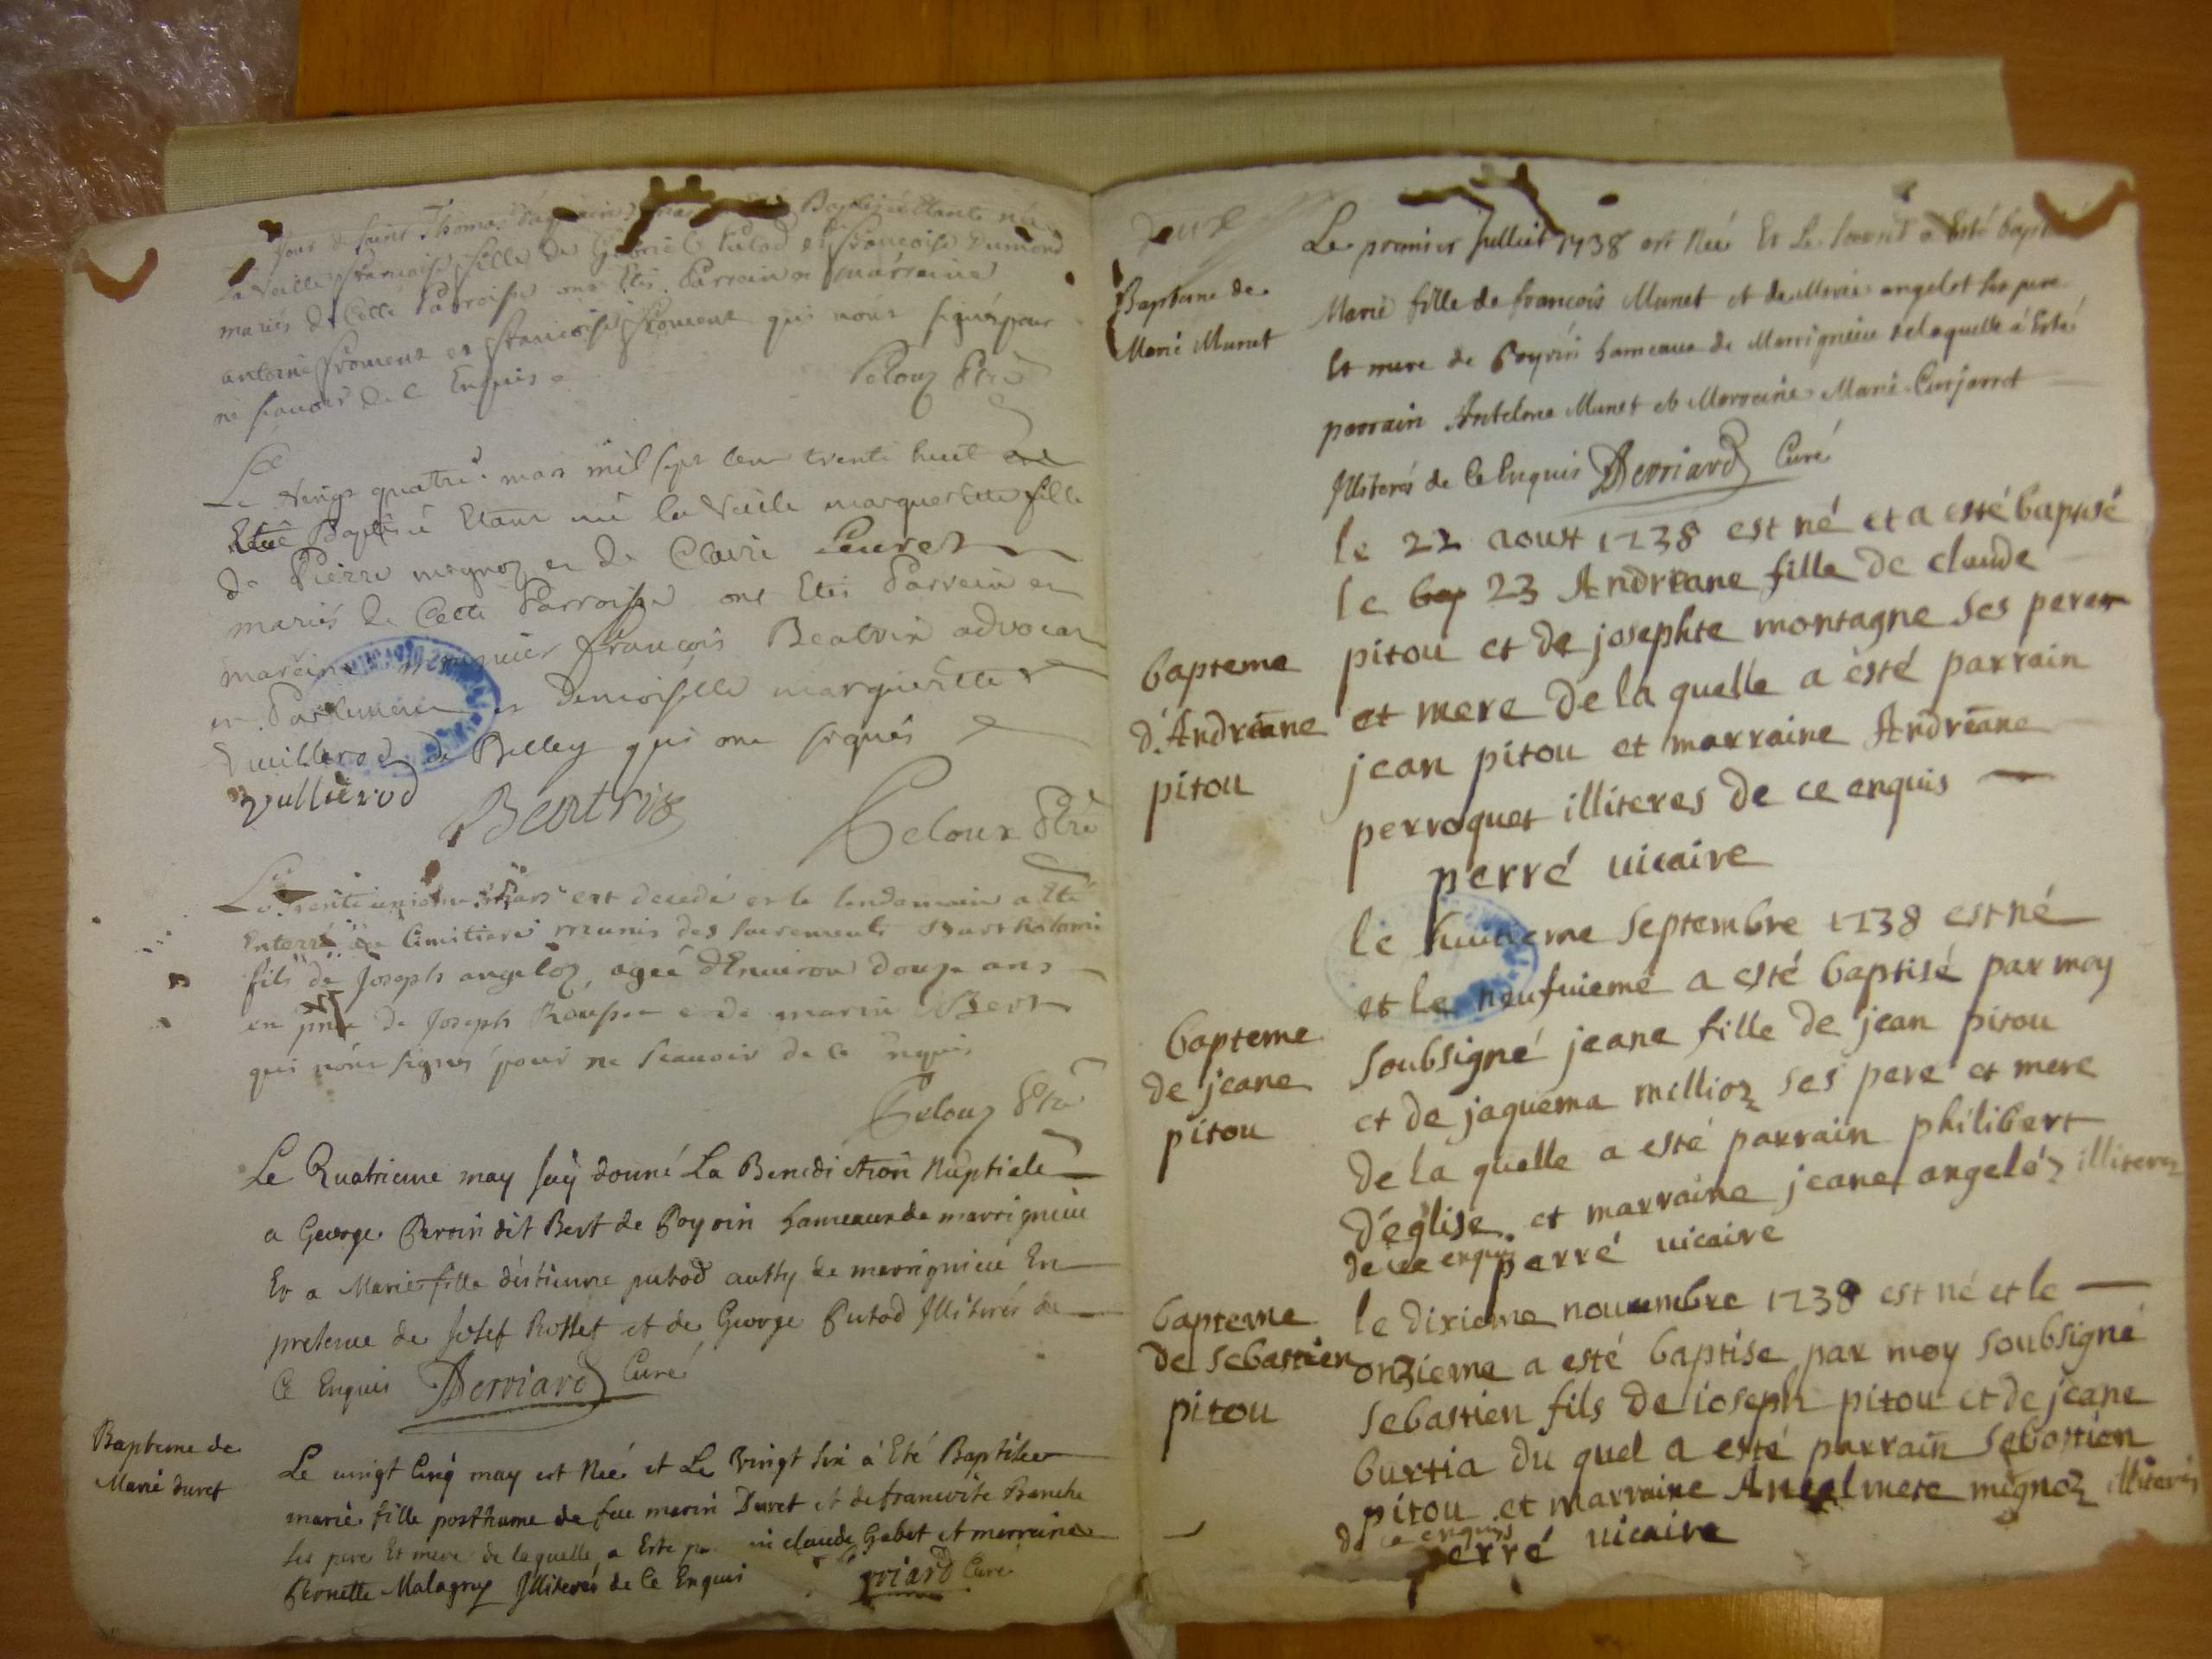 jour de saint Thomas
La Veille francoise fille de Gabriel Putod et francoise Dumond
mariés de Cette Parroisse ont Etés Parrain et marraine
antoine froment et francoise froment qui n'ont signés pour
ne scavoir de ce Enquis
Peloux Ptre
Le vingt quatre mars mil sept cent trente huit
Etté Baptisé Etant née la Veille margueritte fille
de Pierre mognoz et de Claire
mariés de Cette Parroisse ont Etés Parrain et
maraine francois Beatrix advocat
en Parlement et Demoiselle margueritte
Vuillerod de Belley qui ont signés
Vullierod
Beatrix
Peloux Ptre
Le trente unième mars est decedé et le lendemain a Eté
Enterré au Cimitiere munis des sacrements Bartholomé
fils de Joseph angeloz, ageé d'Environ douze ans
en de Joseph et de marin Bert
qui n'ont signés pour ne scauoir de ce Enquis
Peloux Ptre
Le Quatrieme may J'aÿ donné La Benediction Nuptiale
a George Perrin dit Bert de Poyrin hameaux de marrignieu
Et a Marie fille d'estienne putod aussy de marrignieu En
presence de Josef Rosset et de George Putod Illiterés de
Ce Enquis Derriard Curé
Bapteme de
Marie duret
Le vingt Cinq may est Née et Le Vingt six à Eté Baptisée
marie fille posthume de feu marin Duret et de francoise Banche
ses pere Et mere de laquelle a Esté claude Gabet et marraine
Pernette Malagruy Illiterés de Ce Enquis
Curé
Bapteme de
Marie Munet
Le premier Julliet 1738 est Née Et Le a Esté
Marie fille de francois Munet et de Marie angelot ses pere
Et mere de Poyrin hameaux de Marrignieu de laquelle a Esté
parrain Antelme Munet et Marraine Marie
Illiterés de Ce Enquis Derriard Curé
le 22 aoust 1738 est né et a esté baptisé
le 23 Andréane fille de claude
pitou et de josephte montagne ses perer
et mere de la quelle a esté parrain
jean pitou et marraine Andréane
perroquet illiteres de ce enquis
perré uicaire
bapteme
d'Andréane
pitou
le huitieme septembre 1738 est né
et le neufuieme a esté baptisé par moy
soubsigné jeane fille de jean pitou
et de jaquema millioz ses pere et mere
de la quelle a esté parrain philibert
d'eglise et marraine jeane angeloz illiteres
de ce enquis perré uicaire
bapteme
de jeane
pitou
le dixieme nouembre 1738 est né et le
onzieme a esté baptise par moy soubsigné
sebastien fils de ioseph pitou et de jeane
burtia du quel a esté parrain sebastien
pitou et marraine mognoz illiterés
de ce enquis
perré uicaire
bapteme
de sebastien
pitou